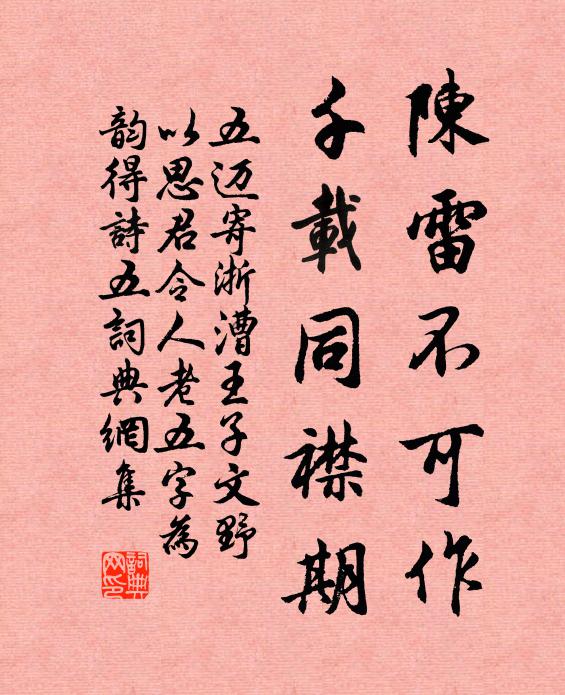 陳雷不可作
千載同襟期
五迈寄浙漕王子文野
以思君令人老五字為
韵得詩五詞典網集
詞典网印